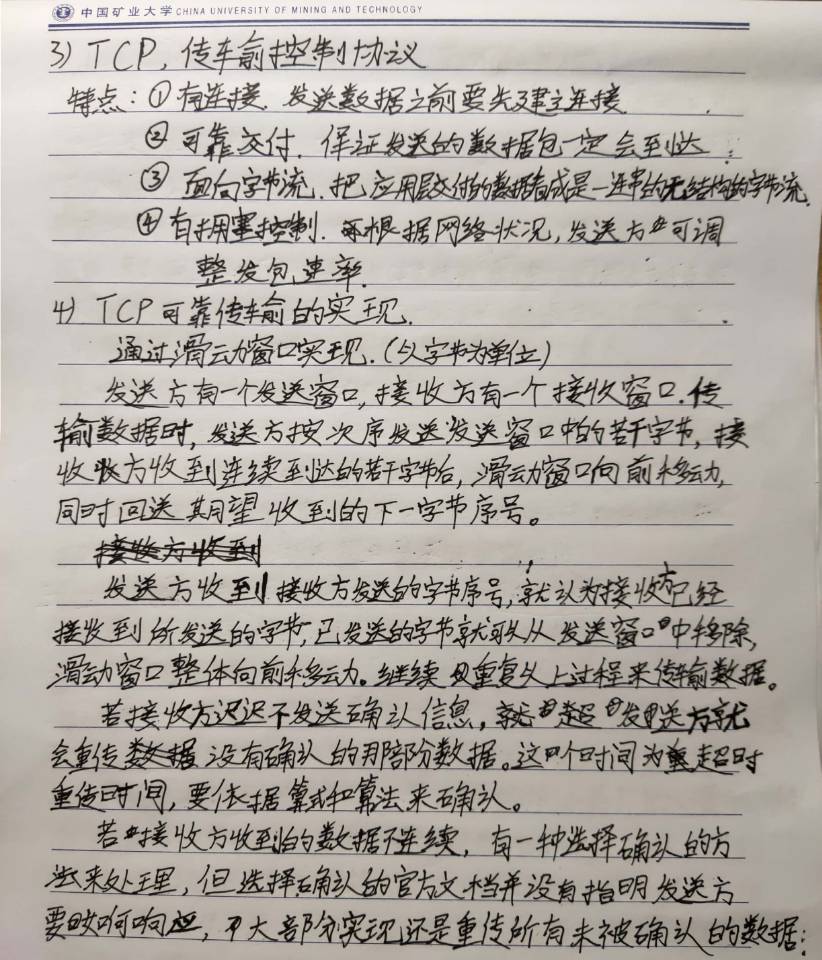 中国矿业大学 CHINA UNIVERSITY OF MINING AND TECHNOLOGY
3) TCP, 传输控制协议
特点：① 有连接. 发送数据之前要先建立连接
② 可靠交付. 保证发送的数据包一定会到达
③ 面向字节流. 把应用层交付的数据看成是一连串的无结构的字节流.
④ 有拥塞控制. 根据网络状况，发送方可调
整发包速率.
4) TCP可靠传输的实现.
通过滑动窗口实现.(以字节为单位)
发送方有一个发送窗口，接收方有一个接收窗口.传
输数据时，发送方按次序发送发送窗口中的若干字节，接
收方收到连续到达的若干字节后，滑动窗口向前移动，
同时回送期望收到的下一字节序号。
接收方收到
发送方收到接收方发送的字节序号，就认为接收方已经
接收到所发送的字节，已发送的字节就可以从发送窗口中移除，
滑动窗口整体向前移动。继续重复以上过程来传输数据。
若接收方迟迟不发送确认信息，发送方就
会重传数据没有确认的那部分数据。这个时间为超时
重传时间，要依据算式和算法来确认。
若接收方收到的数据不连续，有一种选择确认的方
法来处理，但选择确认的官方文档并没有指明发送方
要如何响应，大部分实现还是重传所有未被确认的数据；